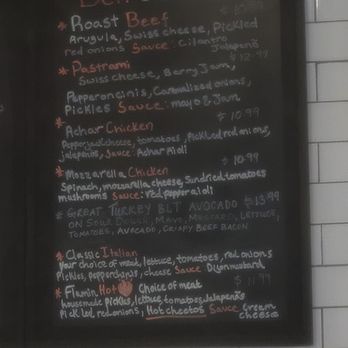 * Roast Beef
Arugula, Swiss cheese, Pickled
red onions Sauce: Cilantro
Jalapeño
* Pastrami $12.99
Swiss cheese, Berry Jam,
Pepperoncinis, Caramalized onions,
Pickles Sauce: mayo & Jam
* Achar Chicken $10.99
Pepperjack cheese, tomatoes, Pickled red onions,
jalapeños, Sauce: Achar Aioli
* Mozzarella Chicken $10.99
Spinach, mozzarella cheese, Sundried tomatoes
mushrooms Sauce: red pepper aioli
* GREAT TURKEY BLT AVOCADO $13.99
ON SOUR DOUGH, MAYO, MUSTARD, LETTUCE,
TOMATOES, AVOCADO, CRISPY BEEF BACON
* Classic Italian
Your choice of meat, lettuce, tomatoes, red onions
Pickles, pepperchinis, cheese Sauce Dijon mustard
* Flamin Hot Choice of meat $11.99
housemade Pickles, lettuce, tomatoes, Jalapeños
Pickled red onions, Hot cheetos Sauce Cream
cheese